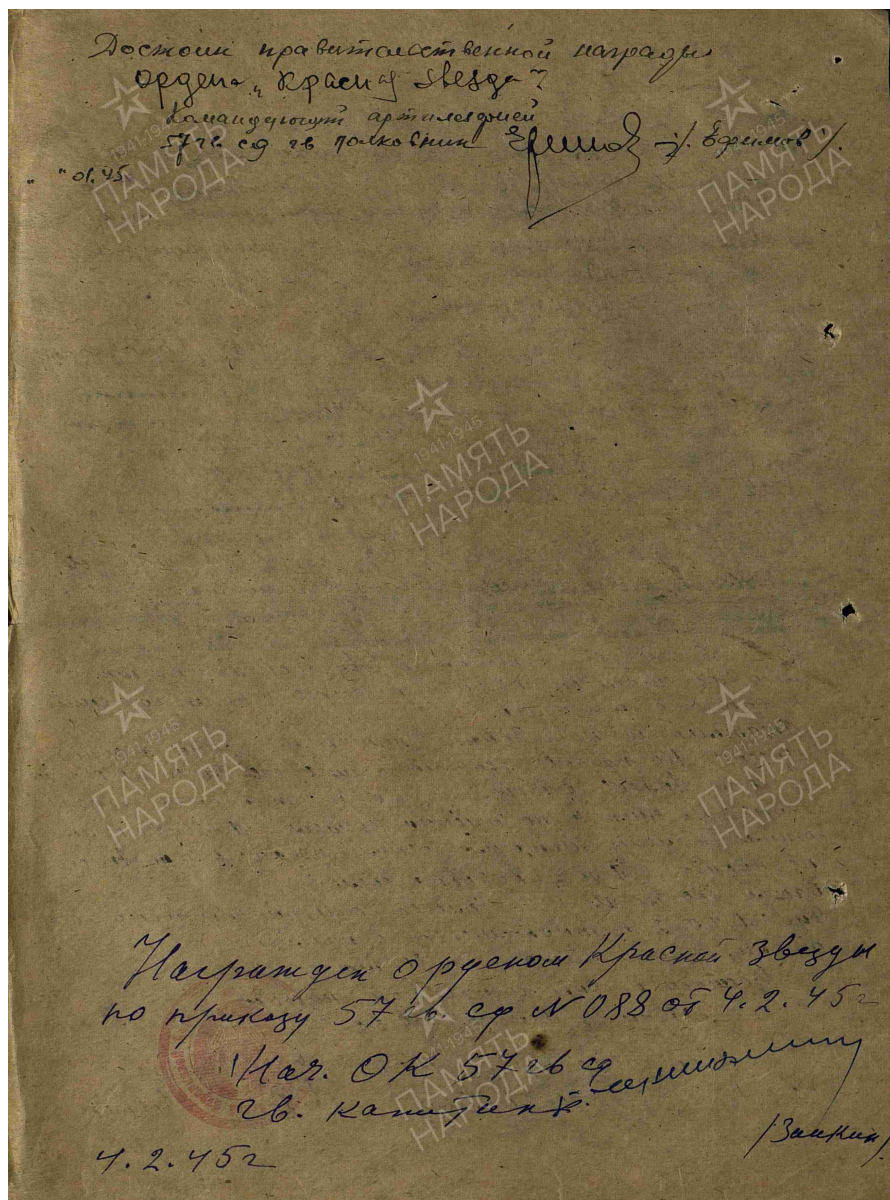 Достоин правительственной награды
ордена „Красная Звезда"
Командующий артиллерией
57 гв. сд гв полковник /Ефимов/.
" " 01.45.
1941-1945
ПАМЯТЬ
НАРОДА
1941-1945
ПАМЯТЬ
НАРОДА
1941-1945
ПАМЯТЬ
НАРОДА
1941-1945
ПАМЯТЬ
НАРОДА
1941-1945
ПАМЯТЬ
НАРОДА
Награжден орденом Красной Звезды
по приказу 57 гв. сд N 088 от 4.2.45г
Нач. ОК 57 гв сд
гв. капитан
/Заикин/
4.2.45г
ПАМЯТЬ
НАРОДА